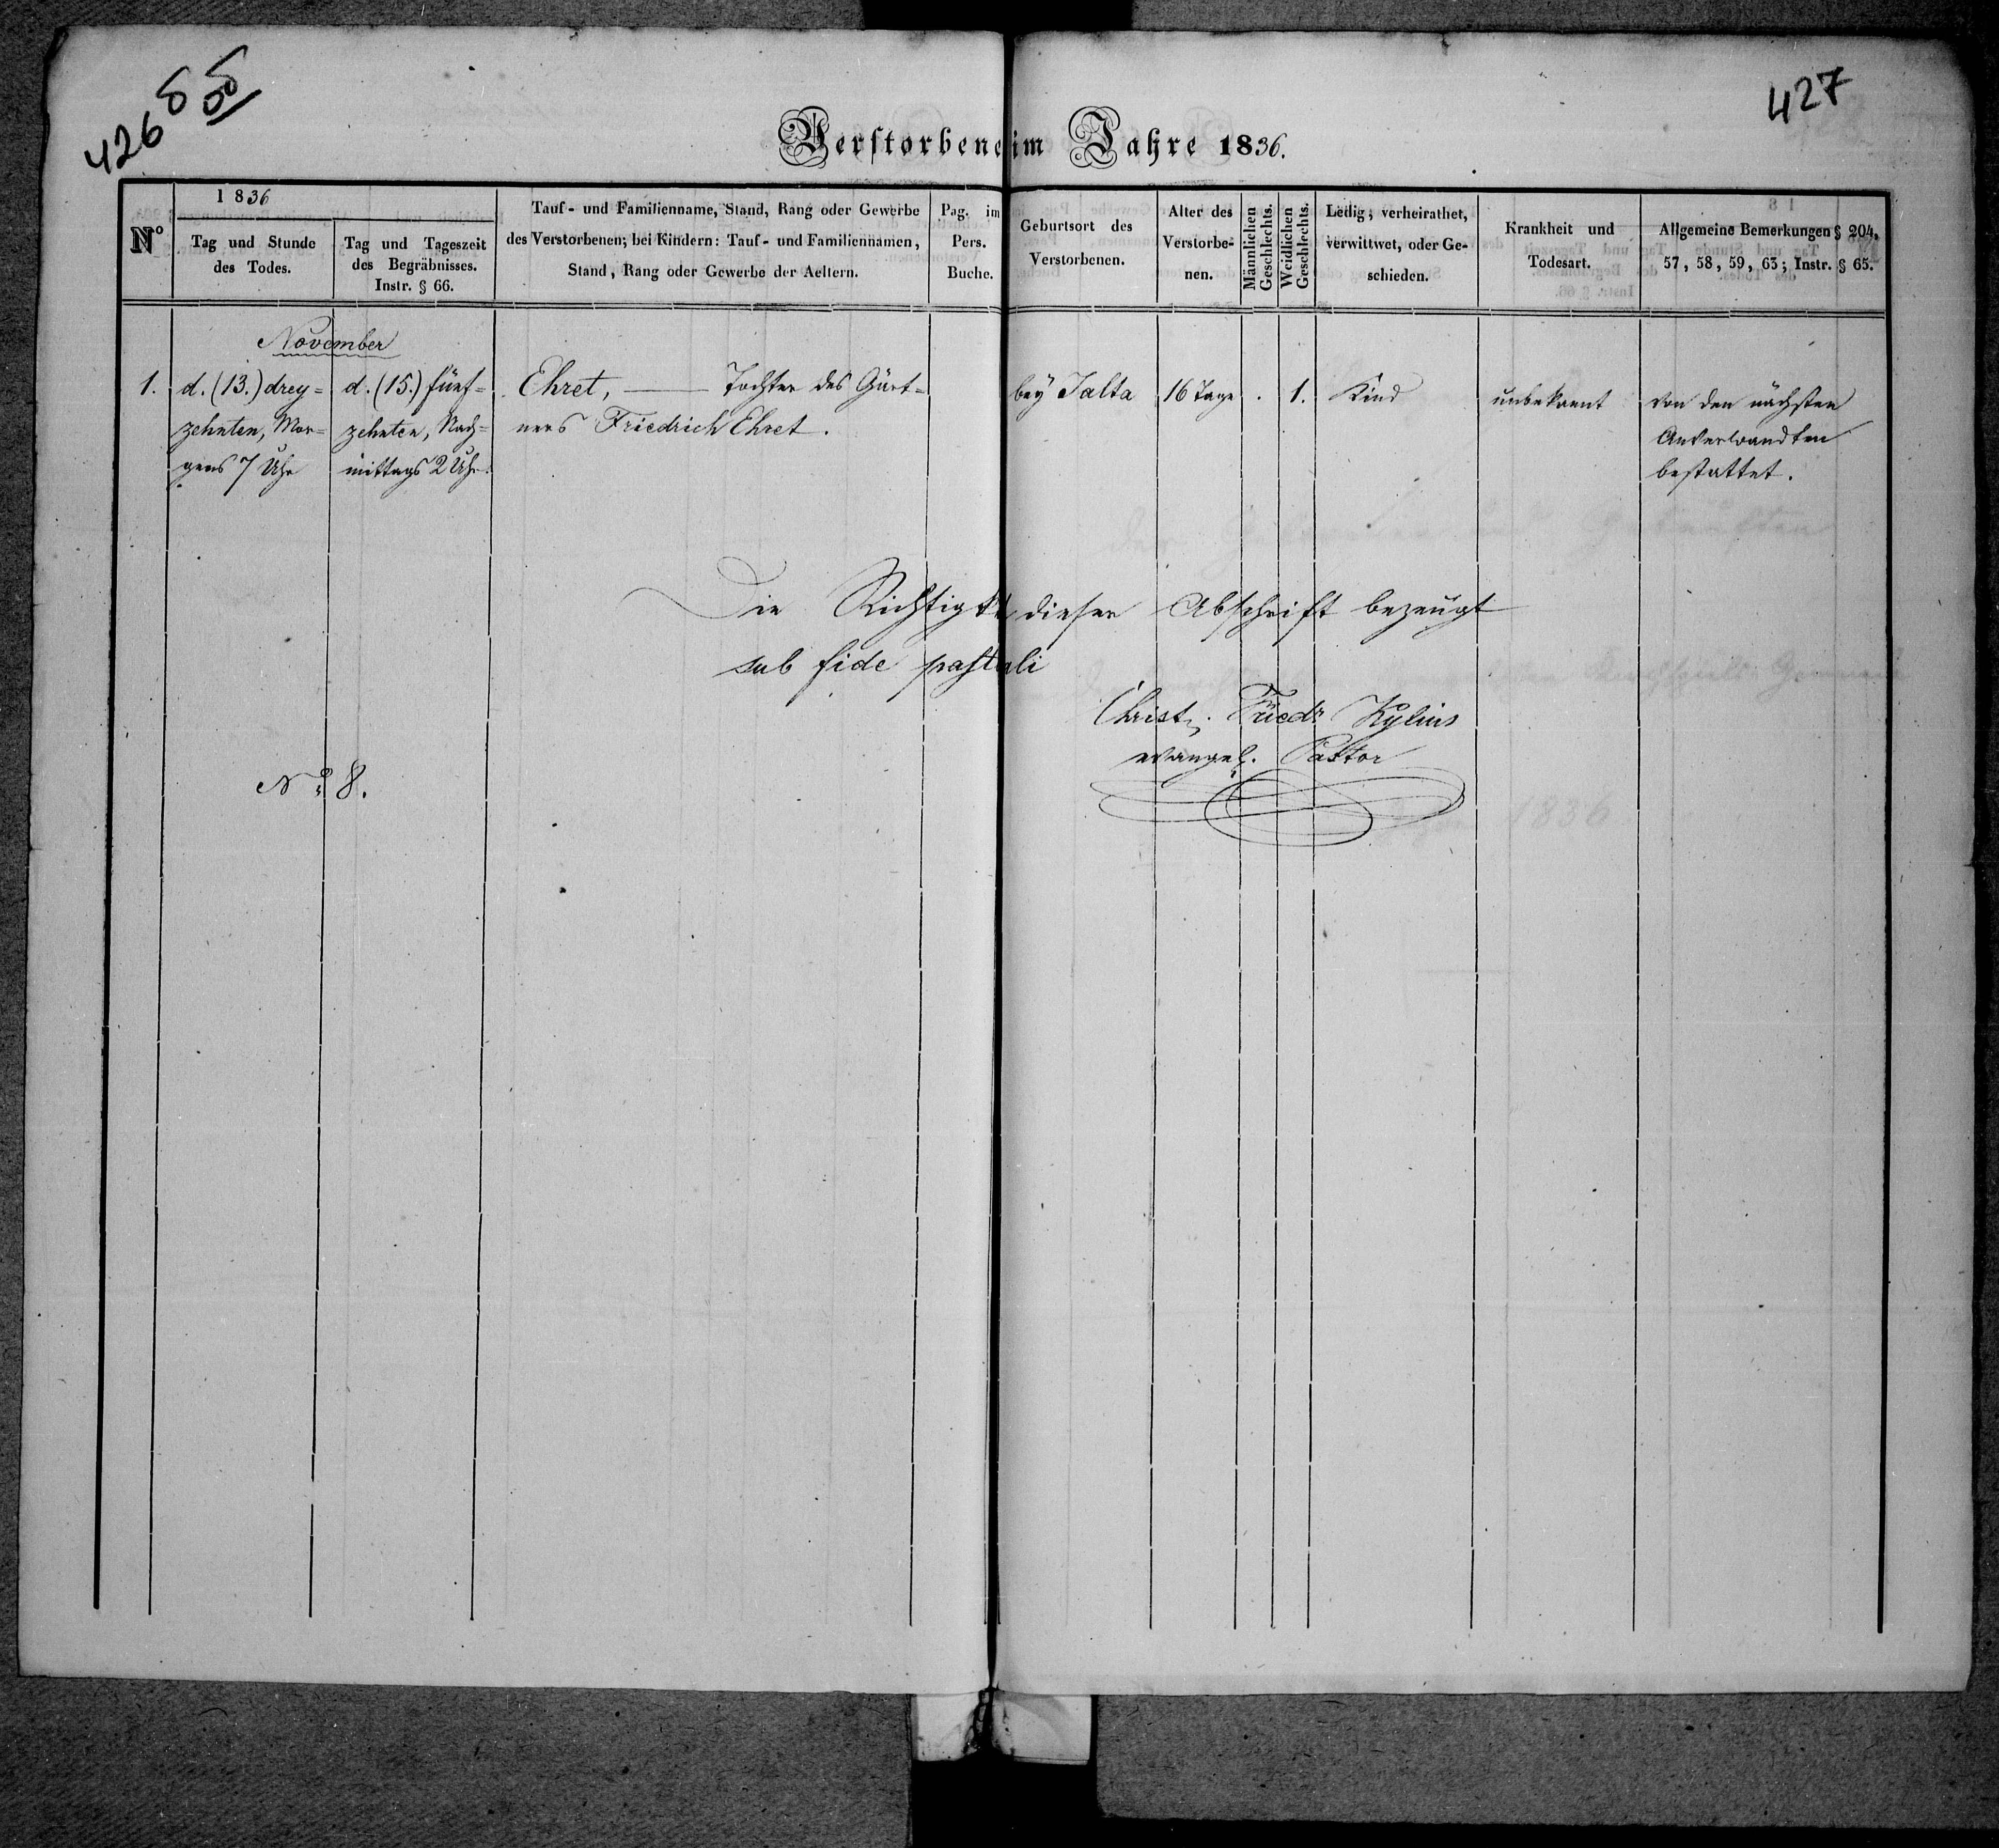 426
427
Verstorbene im Jahre 1836.
N°
1836
Tag und Stunde
des Todes.
Tag und Tageszeit
des Begräbnisses.
Instr. § 66.
Tauf- und Familienname, Stand, Rang oder Gewerbe
des Verstorbenen; bei Kindern: Tauf- und Familiennamen,
Stand, Rang oder Gewerbe der Aeltern.
Pag. im
Pers.
Buche.
Geburtsort des
Verstorbenen.
Alter des
Verstorbe-
nen.
Männlichen
Geschlechts.
Weiblichen
Geschlechts.
Ledig, verheirathet,
verwittwet, oder Ge-
schieden.
Krankheit und
Todesart.
Allgemeine Bemerkungen § 204,
57, 58, 59, 63; Instr. § 65.
November
1.
d. (13.) drey=
zehnten, Mor=
gens 7 Uhr
d. (15.) fünf=
zehnten, Nach=
mittags 2 Uhr.
Ehret, — Tochter des Gärt=
ners Friedrich Ehret.
bey Jalta
16 Tage
.
1.
Kind
unbekannt
von den nächsten
Anverwandten
bestattet.
Die Richtigkt dieser Abschrift bezeugt
sub fide pastorali
Christ. Friedr. Kylius
evangel. Pastor
N° 8.